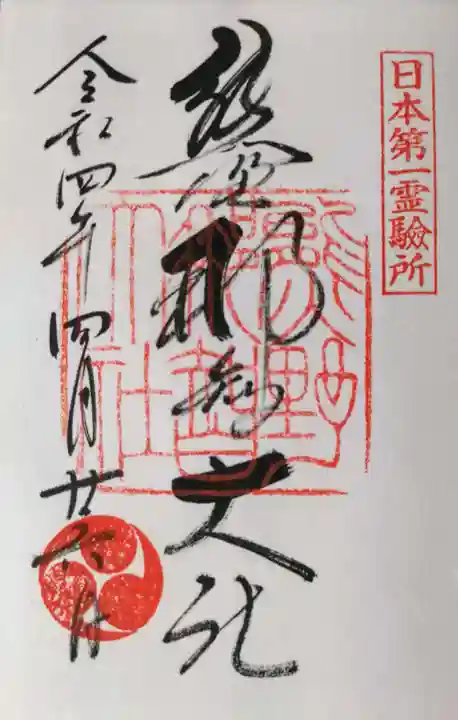 日本第一霊驗所
熊野那智大社
令和四年四月廿六日
熊野
那智
大社